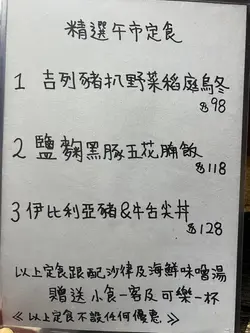 精選午市定食
1 吉列豬扒野菜稻庭烏冬
$98
2 鹽麴黑豚五花腩飯
$118
3 伊比利亞豬&牛舌尖丼
$128
以上定食跟配沙律及海鮮味噌湯
贈送小食一客及可樂一杯
《以上定食不設任何優惠》